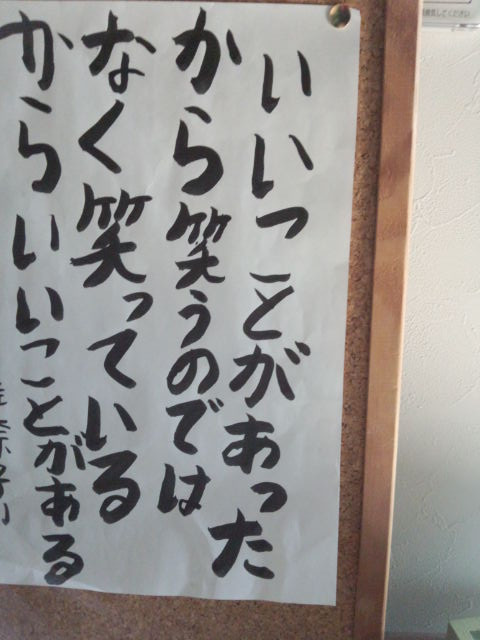 いいことがあった
から笑うのでは
なく笑っている
からいいことがある